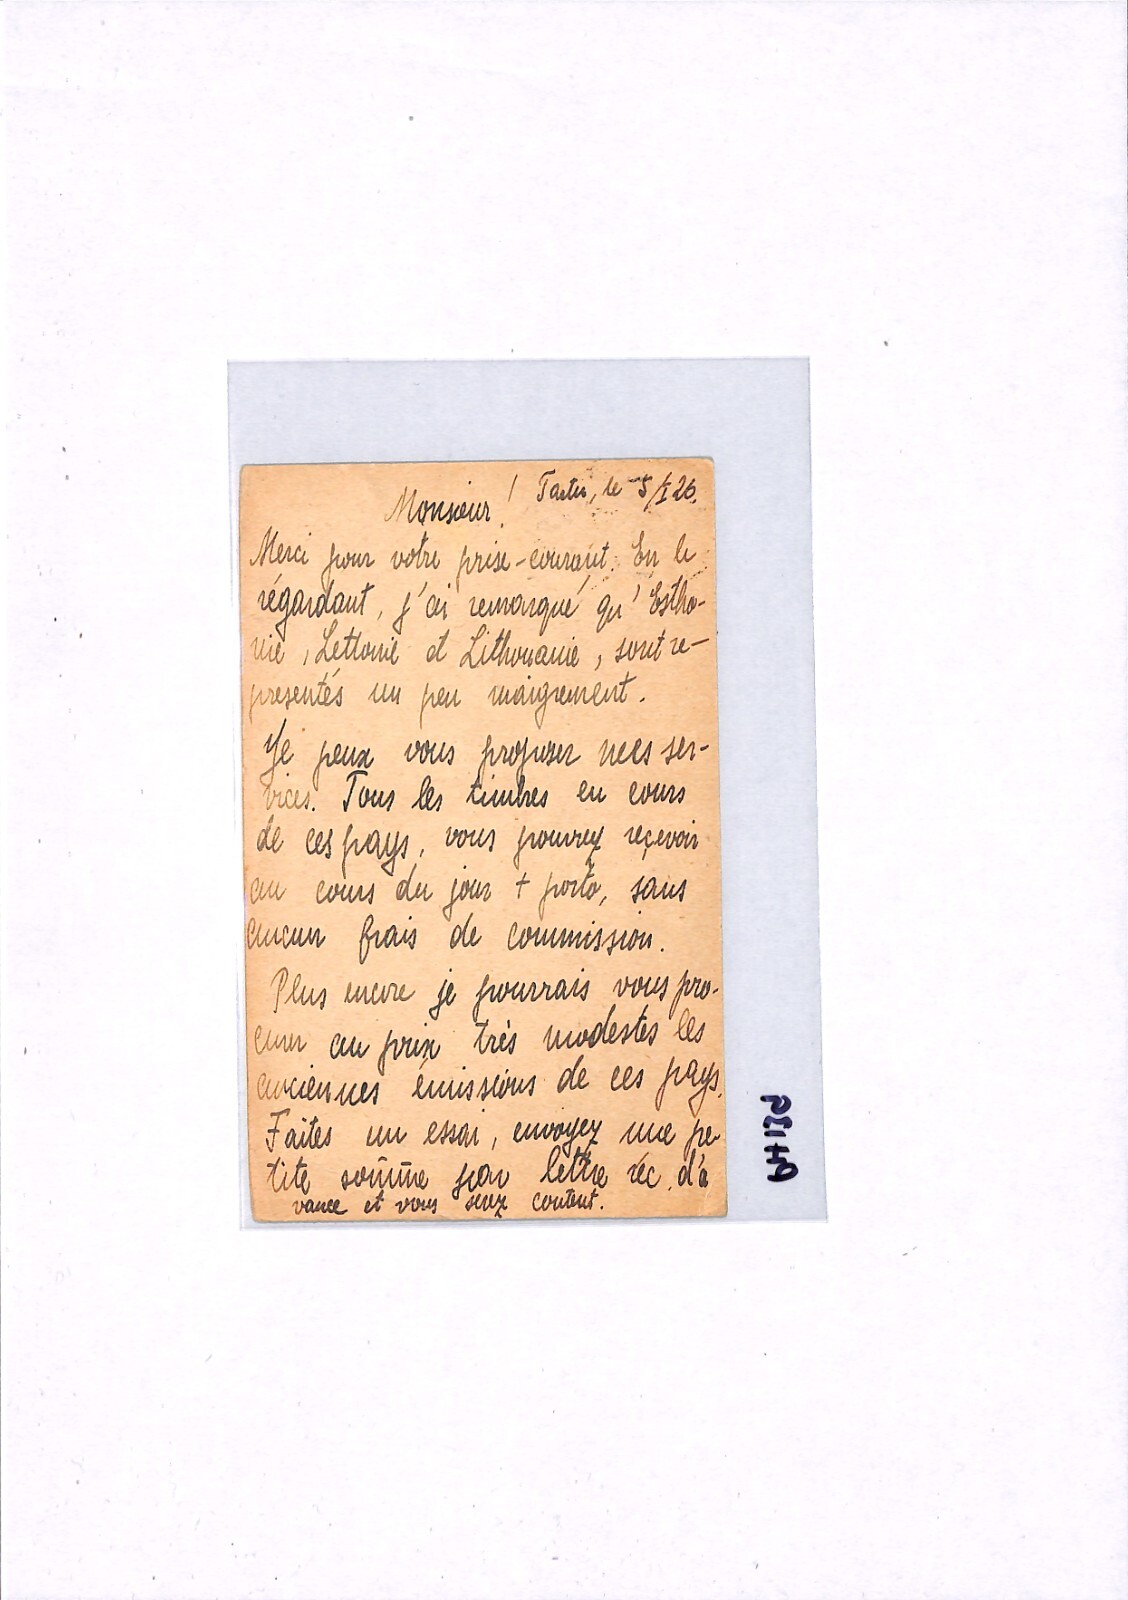 Tartu, le 5/I 26.
Monsieur!
Merci pour votre prise-courant. En le
régardant, j'ai remarqué qu'Estho-
nie, Lettonie et Lithouanie, sont re-
presentés un peu maigrement.
Je peux vous proposer mes ser-
vices. Tous les timbres en cours
de ces pays, vous pouvez reçevoir
au cours du jour + porto, sans
aucun frais de commission.
Plus encore je pourrais vous pro-
curer au prix très modestes les
anciennes émissions de ces pays.
Faites un essai, envoyez une pe-
tite somme par lettre réc. d'a
vance et vous serez content.